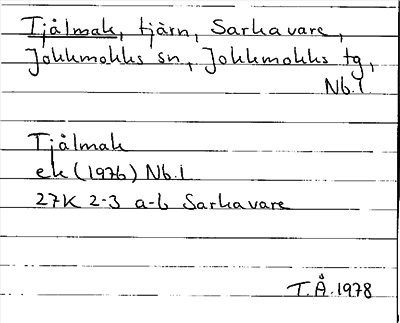 Tjålmak, tjärn, Sarkavare,
Jokkmokks sn, Jokkmokks tg,
Nb. l
Tjålmak
ek (1976) Nb. l
27K 2-3 a-b Sarkavare
T.Å. 1978